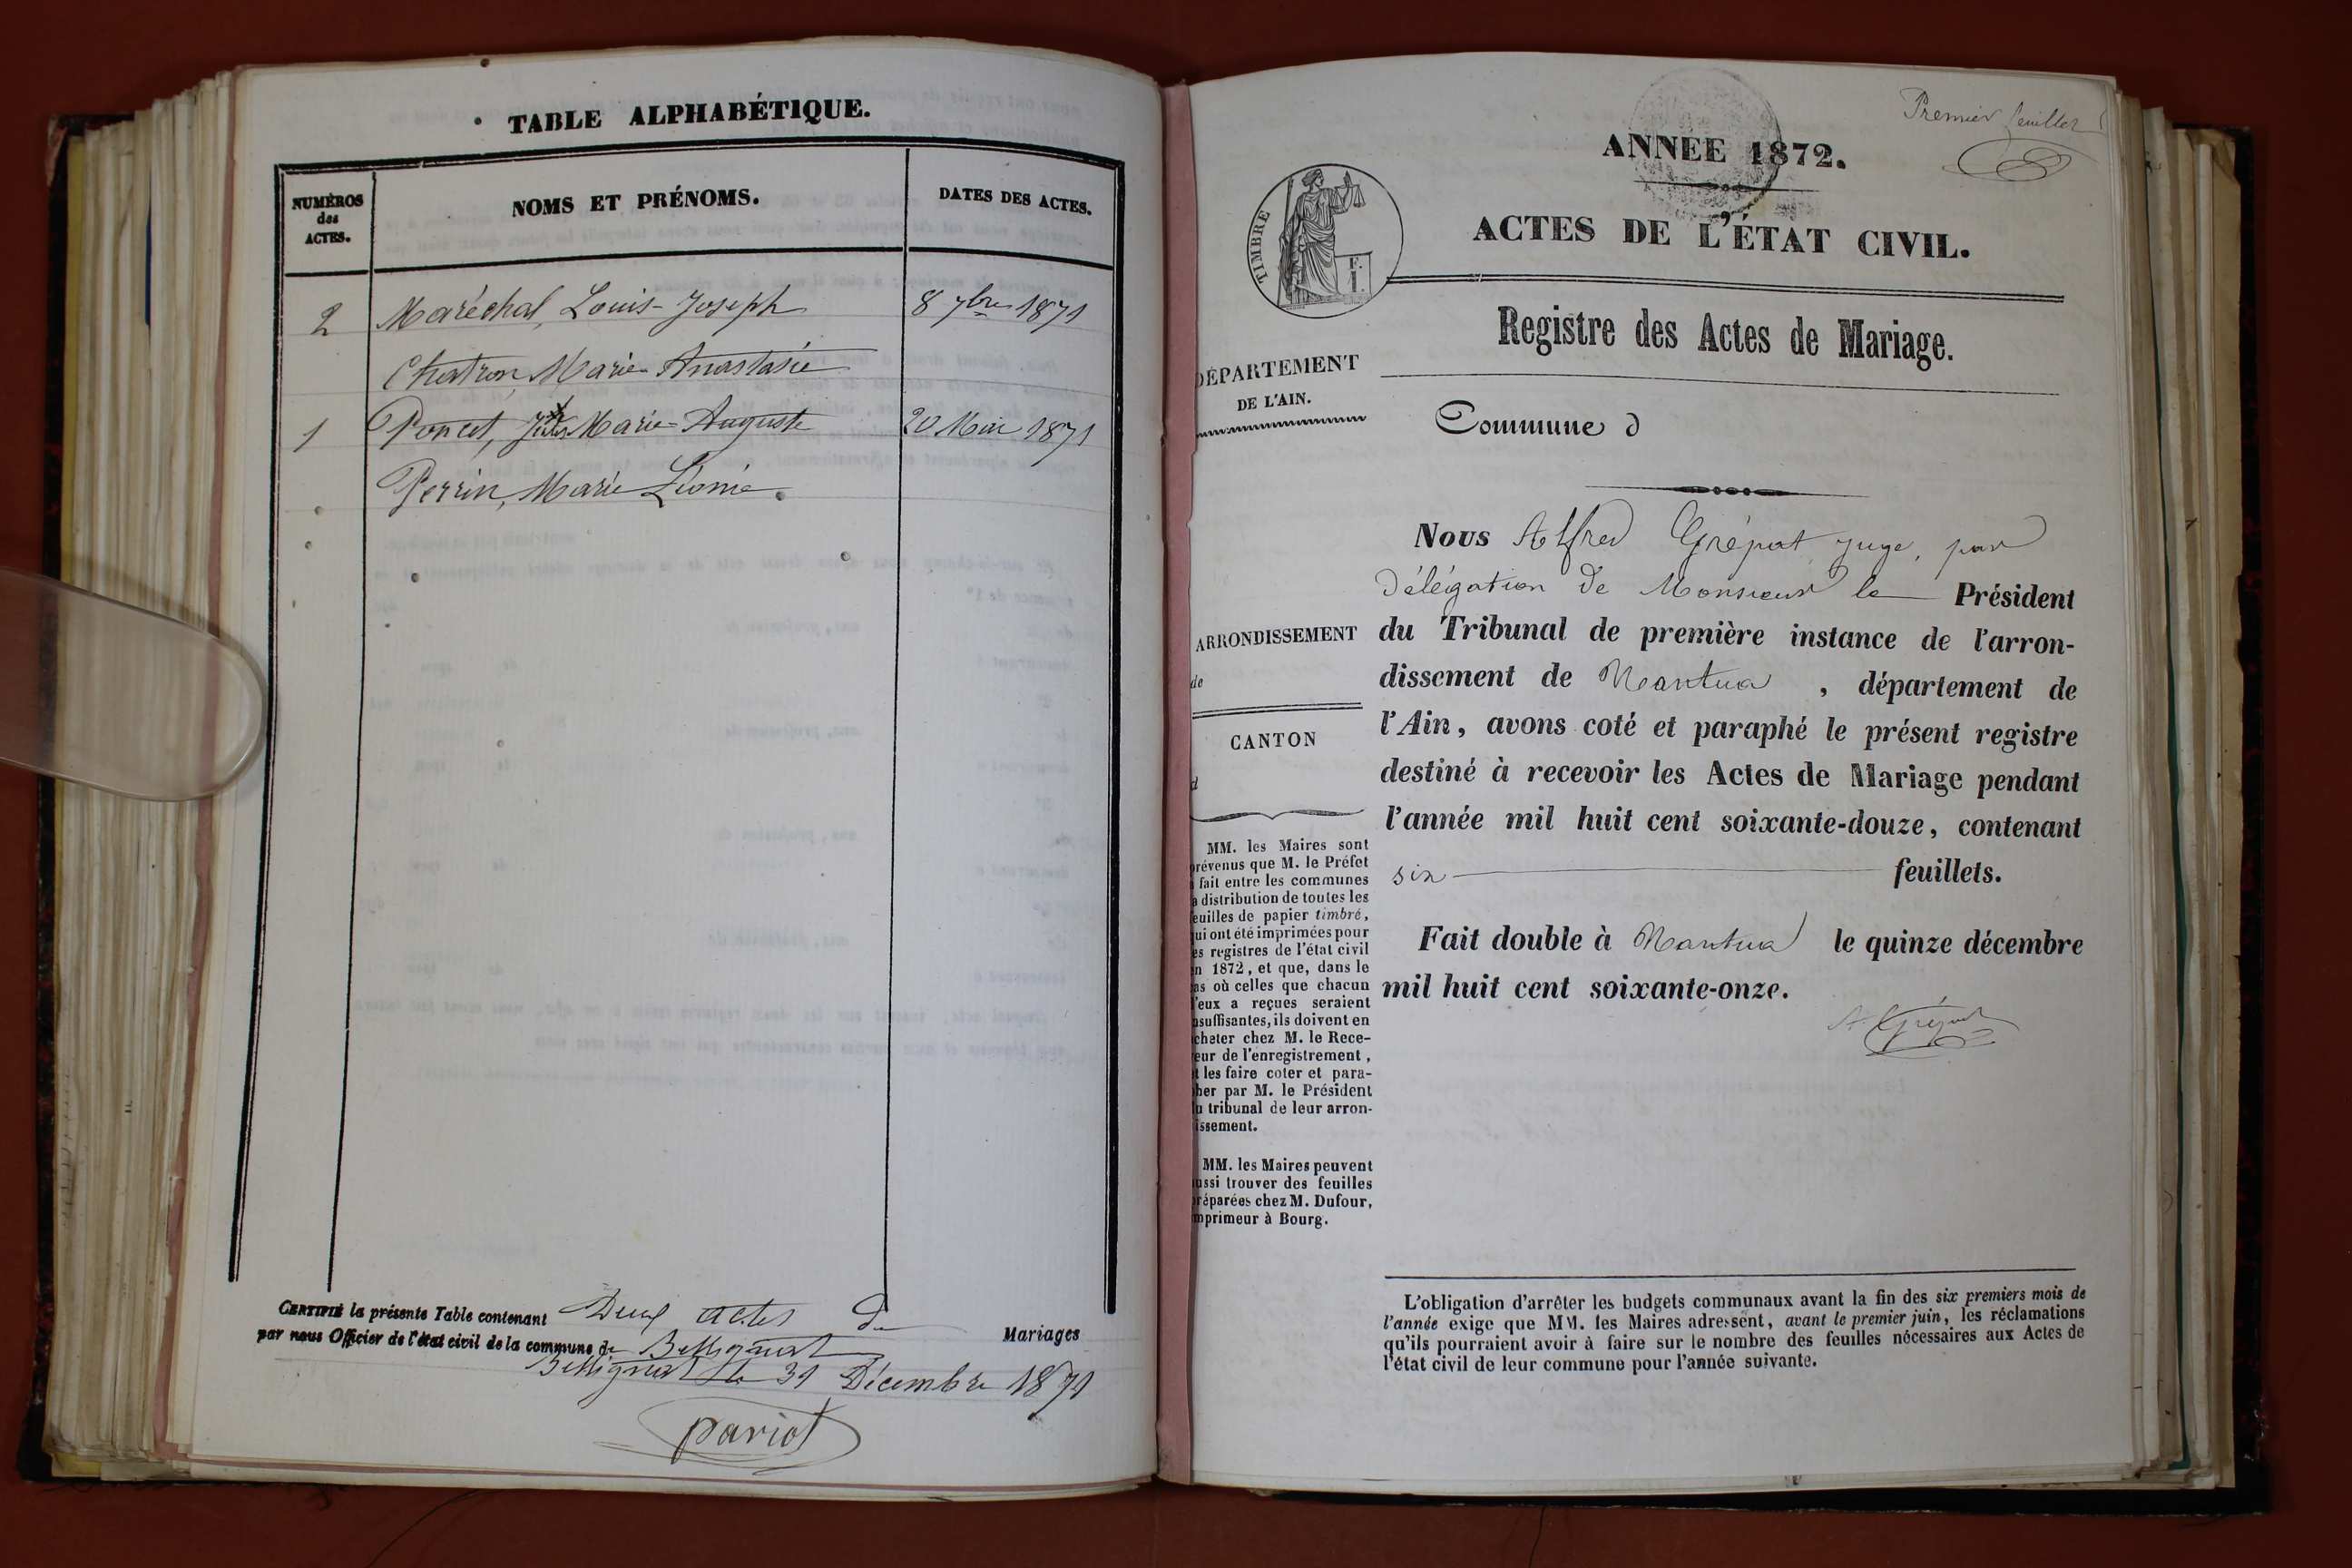 TABLE ALPHABÉTIQUE.
NUMÉROS
des
ACTES.
NOMS ET PRÉNOMS.
DATES DES ACTES.
2 Maréchal, Louis-Joseph 8 7bre 1871
Chatron Marie-Anastasie
1 Poncet, Marie-Auguste 20 Mai 1871
Perrin, Marie Léonie.
CERTIFIÉ la présente Table contenant Deux actes de Mariages
par nous Officier de l'état civil de la commune de Bellignat
Bellignat le 31 Décembre 1871
Pariot
Premier feuillet
ANNEE 1872.
ACTES DE L'ÉTAT CIVIL.
TIMBRE
Registre des Actes de Mariage.
DÉPARTEMENT
DE L'AIN.
Commune d
ARRONDISSEMENT
de
CANTON
d
Nous Alfred Grépat juge, par
délégation de Monsieur le Président
du Tribunal de première instance de l'arron-
dissement de Nantua, département de
l'Ain, avons coté et paraphé le présent registre
destiné à recevoir les Actes de Mariage pendant
l'année mil huit cent soixante-douze, contenant
six feuillets.
Fait double à Nantua le quinze décembre
mil huit cent soixante-onze.
A. Grépat
MM. les Maires sont
révenus que M. le Préfet
fait entre les communes
a distribution de toutes les
euilles de papier timbré,
ui ont été imprimées pour
es registres de l'état civil
n 1872, et que, dans le
as où celles que chacun
'eux a reçues seraient
nsuffisantes, ils doivent en
cheter chez M. le Rece-
eur de l'enregistrement,
t les faire coter et para-
her par M. le Président
u tribunal de leur arron-
issement.
MM. les Maires peuvent
ussi trouver des feuilles
réparées chez M. Dufour,
mprimeur à Bourg.
L'obligation d'arrêter les budgets communaux avant la fin des six premiers mois de
l'année exige que MM. les Maires adressent, avant le premier juin, les réclamations
qu'ils pourraient avoir à faire sur le nombre des feuilles nécessaires aux Actes de
l'état civil de leur commune pour l'année suivante.